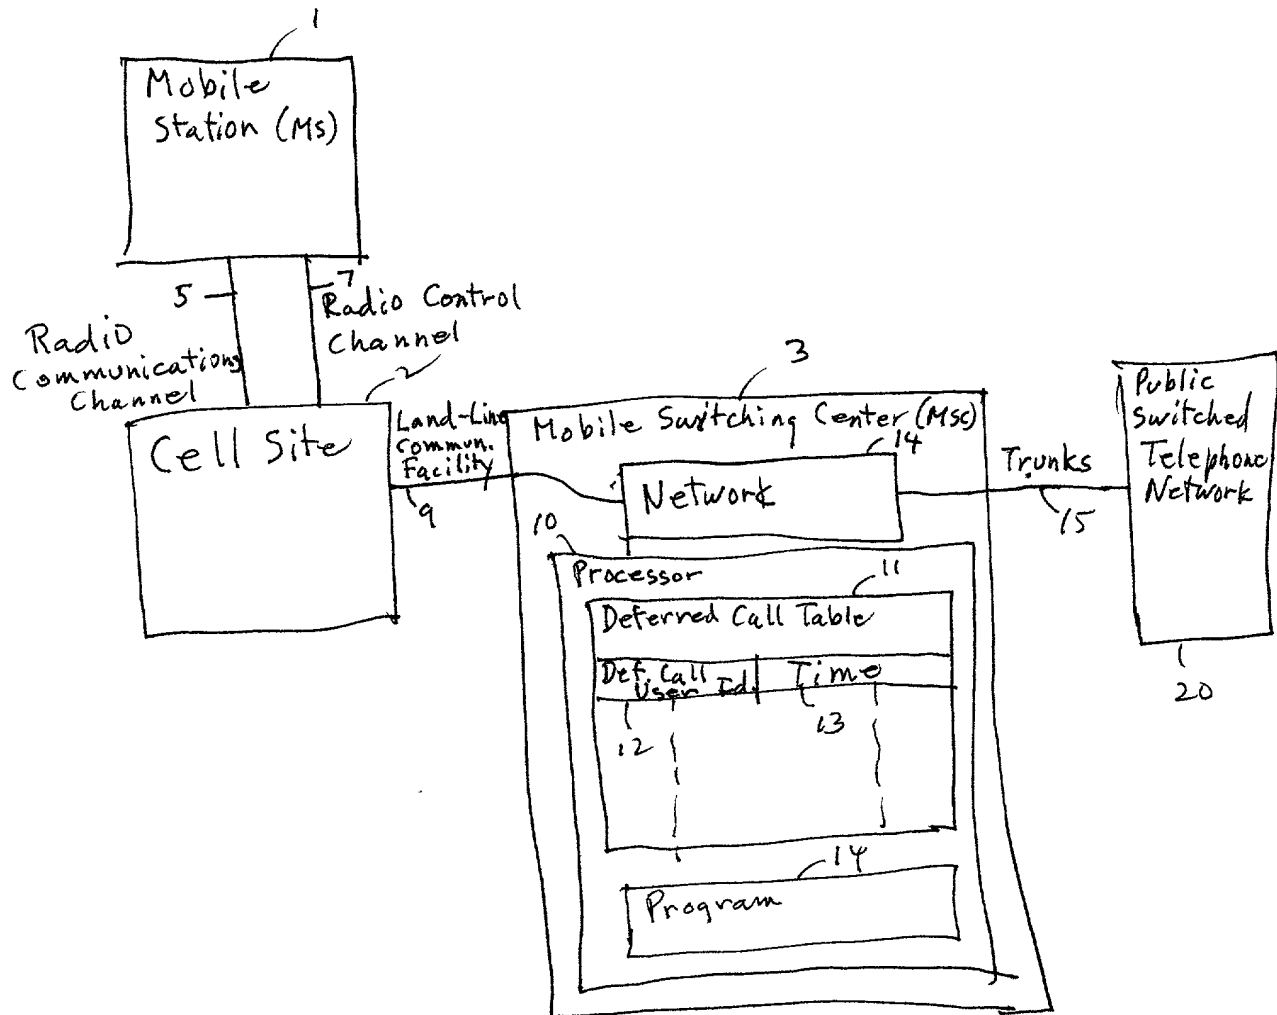 1
Mobile
Station (MS)
5
7
Radio Control
Channel
Radio
Communications
Channel
2
Cell Site
Land-Line
Commun.
Facility
9
3
Mobile Switching Center (MSC)
14
Network
Trunks
15
Public
Switched
Telephone
Network
20
10
Processor
11
Deferred Call Table
Def. Call
User Id.
Time
12
13
14
Program